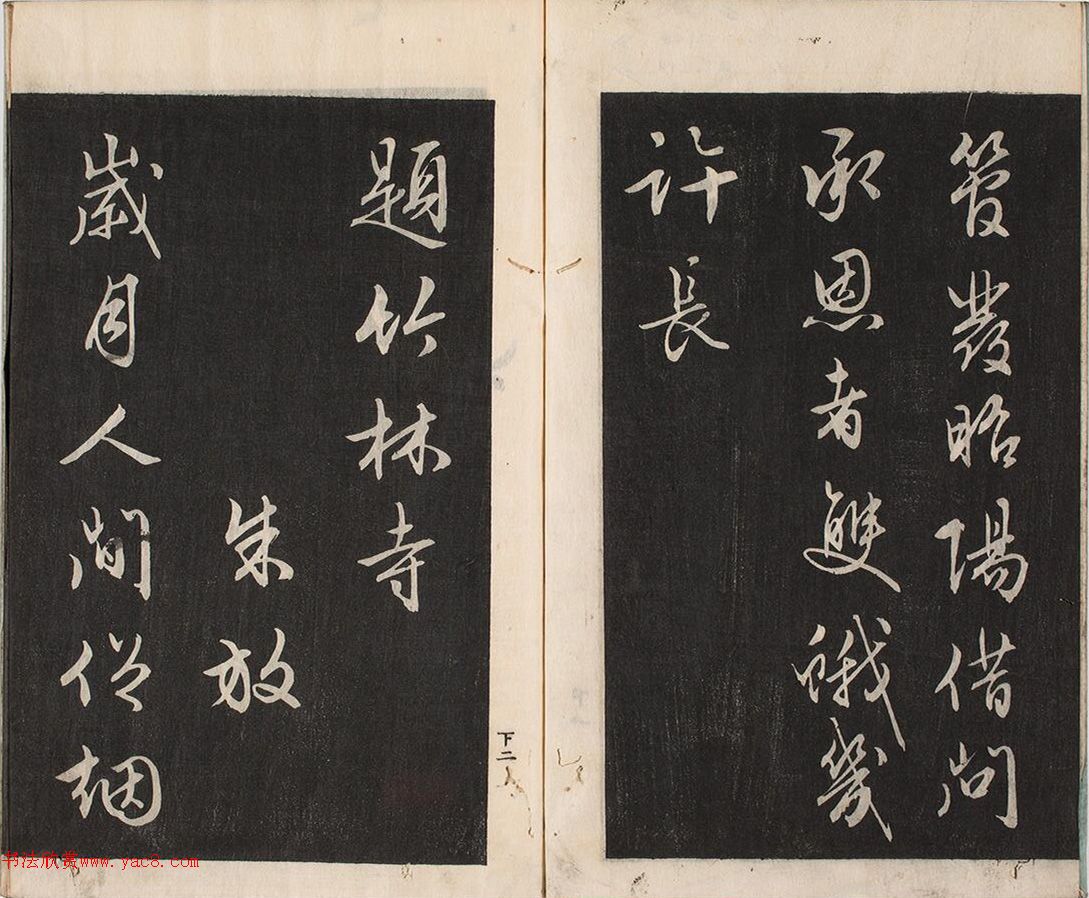 管發昭陽借問
承恩者雙蛾幾
許長
題竹林寺
朱放
歲月人間促烟
下二
书法欣赏www.yac8.com